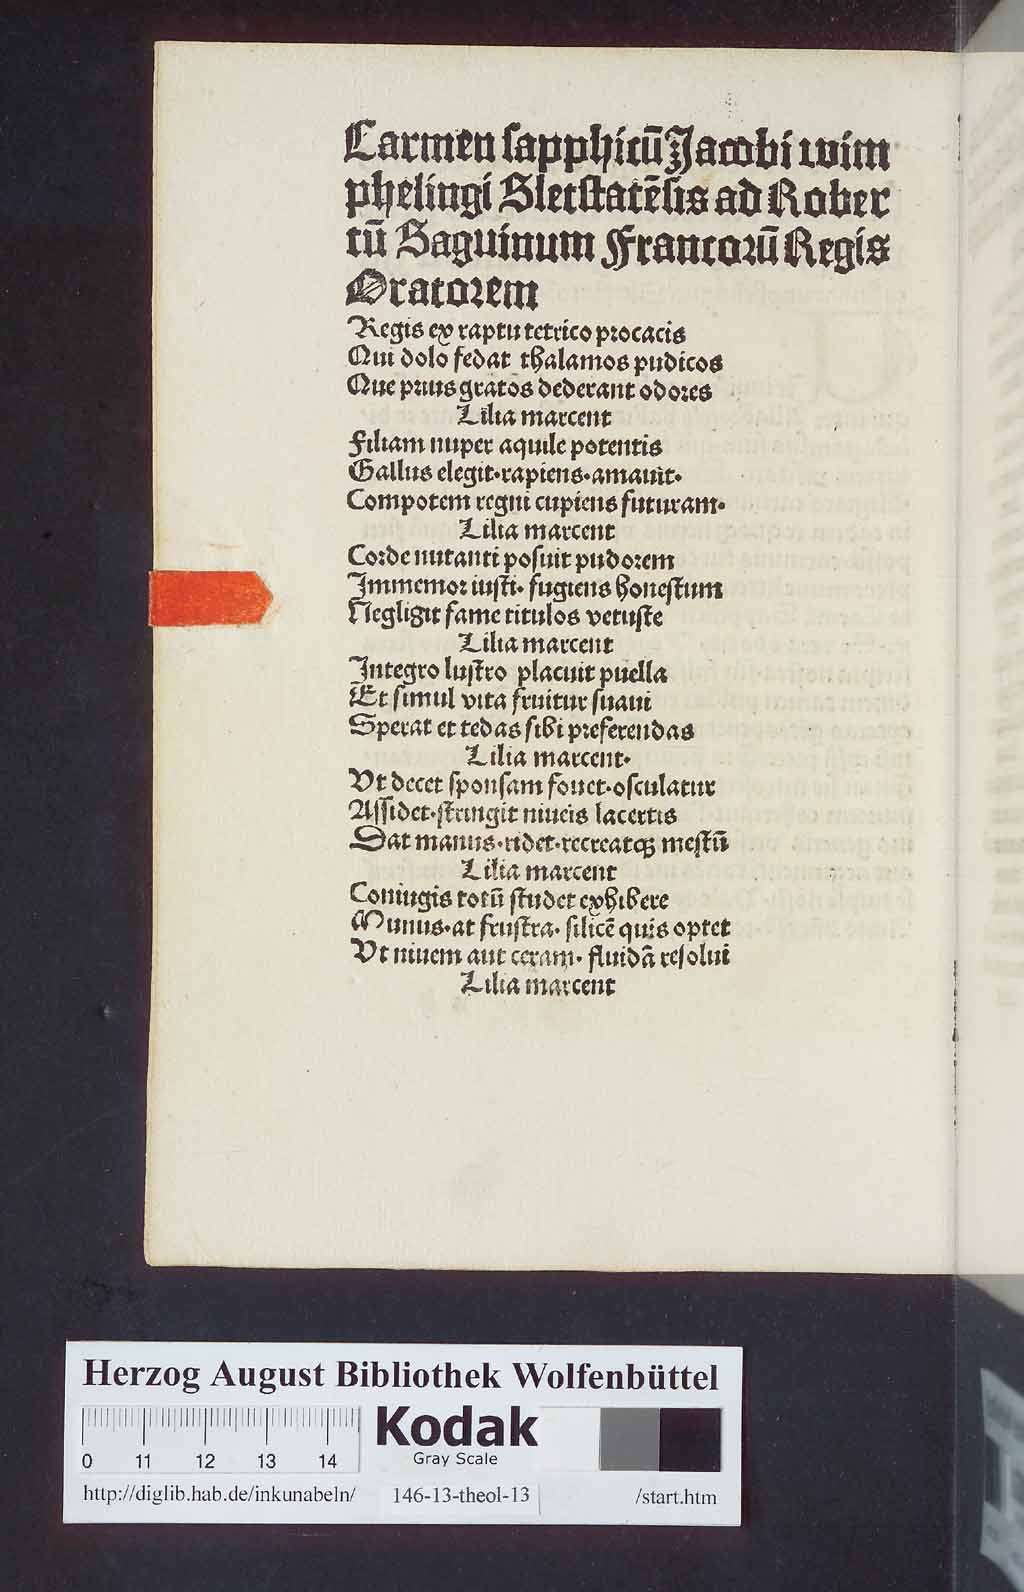 Carmen sapphicū Jacobi wim
phelingi Sletstatēsis ad Rober
tū Gaguinum Francorū Regis
Oratorem
Regis ex raptu tetrico procacis
Qui dolo fedat thalamos pudicos
Que prius gratos dederant odores
Lilia marcent
Filiam nuper aquile potentis
Gallus elegit·rapiens·amauit·
Compotem regni cupiens futuram·
Lilia marcent
Corde nutanti posuit pudorem
Immemor iusti· fugiens honestum
Negligit fame titulos vetuste
Lilia marcent
Integro lustro placuit puella
Et simul vita fruitur suaui
Sperat et tedas sibi preferendas
Lilia marcent·
Vt decet sponsam fouet·osculatur
Assidet·stringit niueis lacertis
Dat manus·ridet·recreatqꝫ mestū
Lilia marcent
Coniugis totū studet exhibere
Munus·at frustra· silicē quis optet
Vt niuem aut ceram· fluidā resolui
Lilia marcent
Herzog August Bibliothek Wolfenbüttel
Kodak
Gray Scale
0 11 12 13 14
http://diglib.hab.de/inkunabeln/ 146-13-theol-13 /start.htm